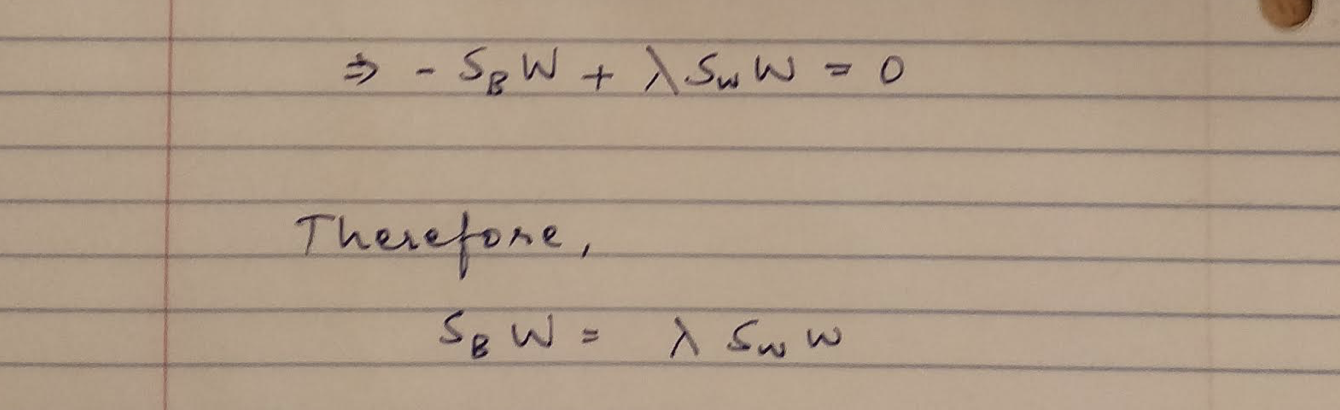 ⇒ - S_B W + λ S_w W = 0
Therefore,
S_B W = λ S_w w